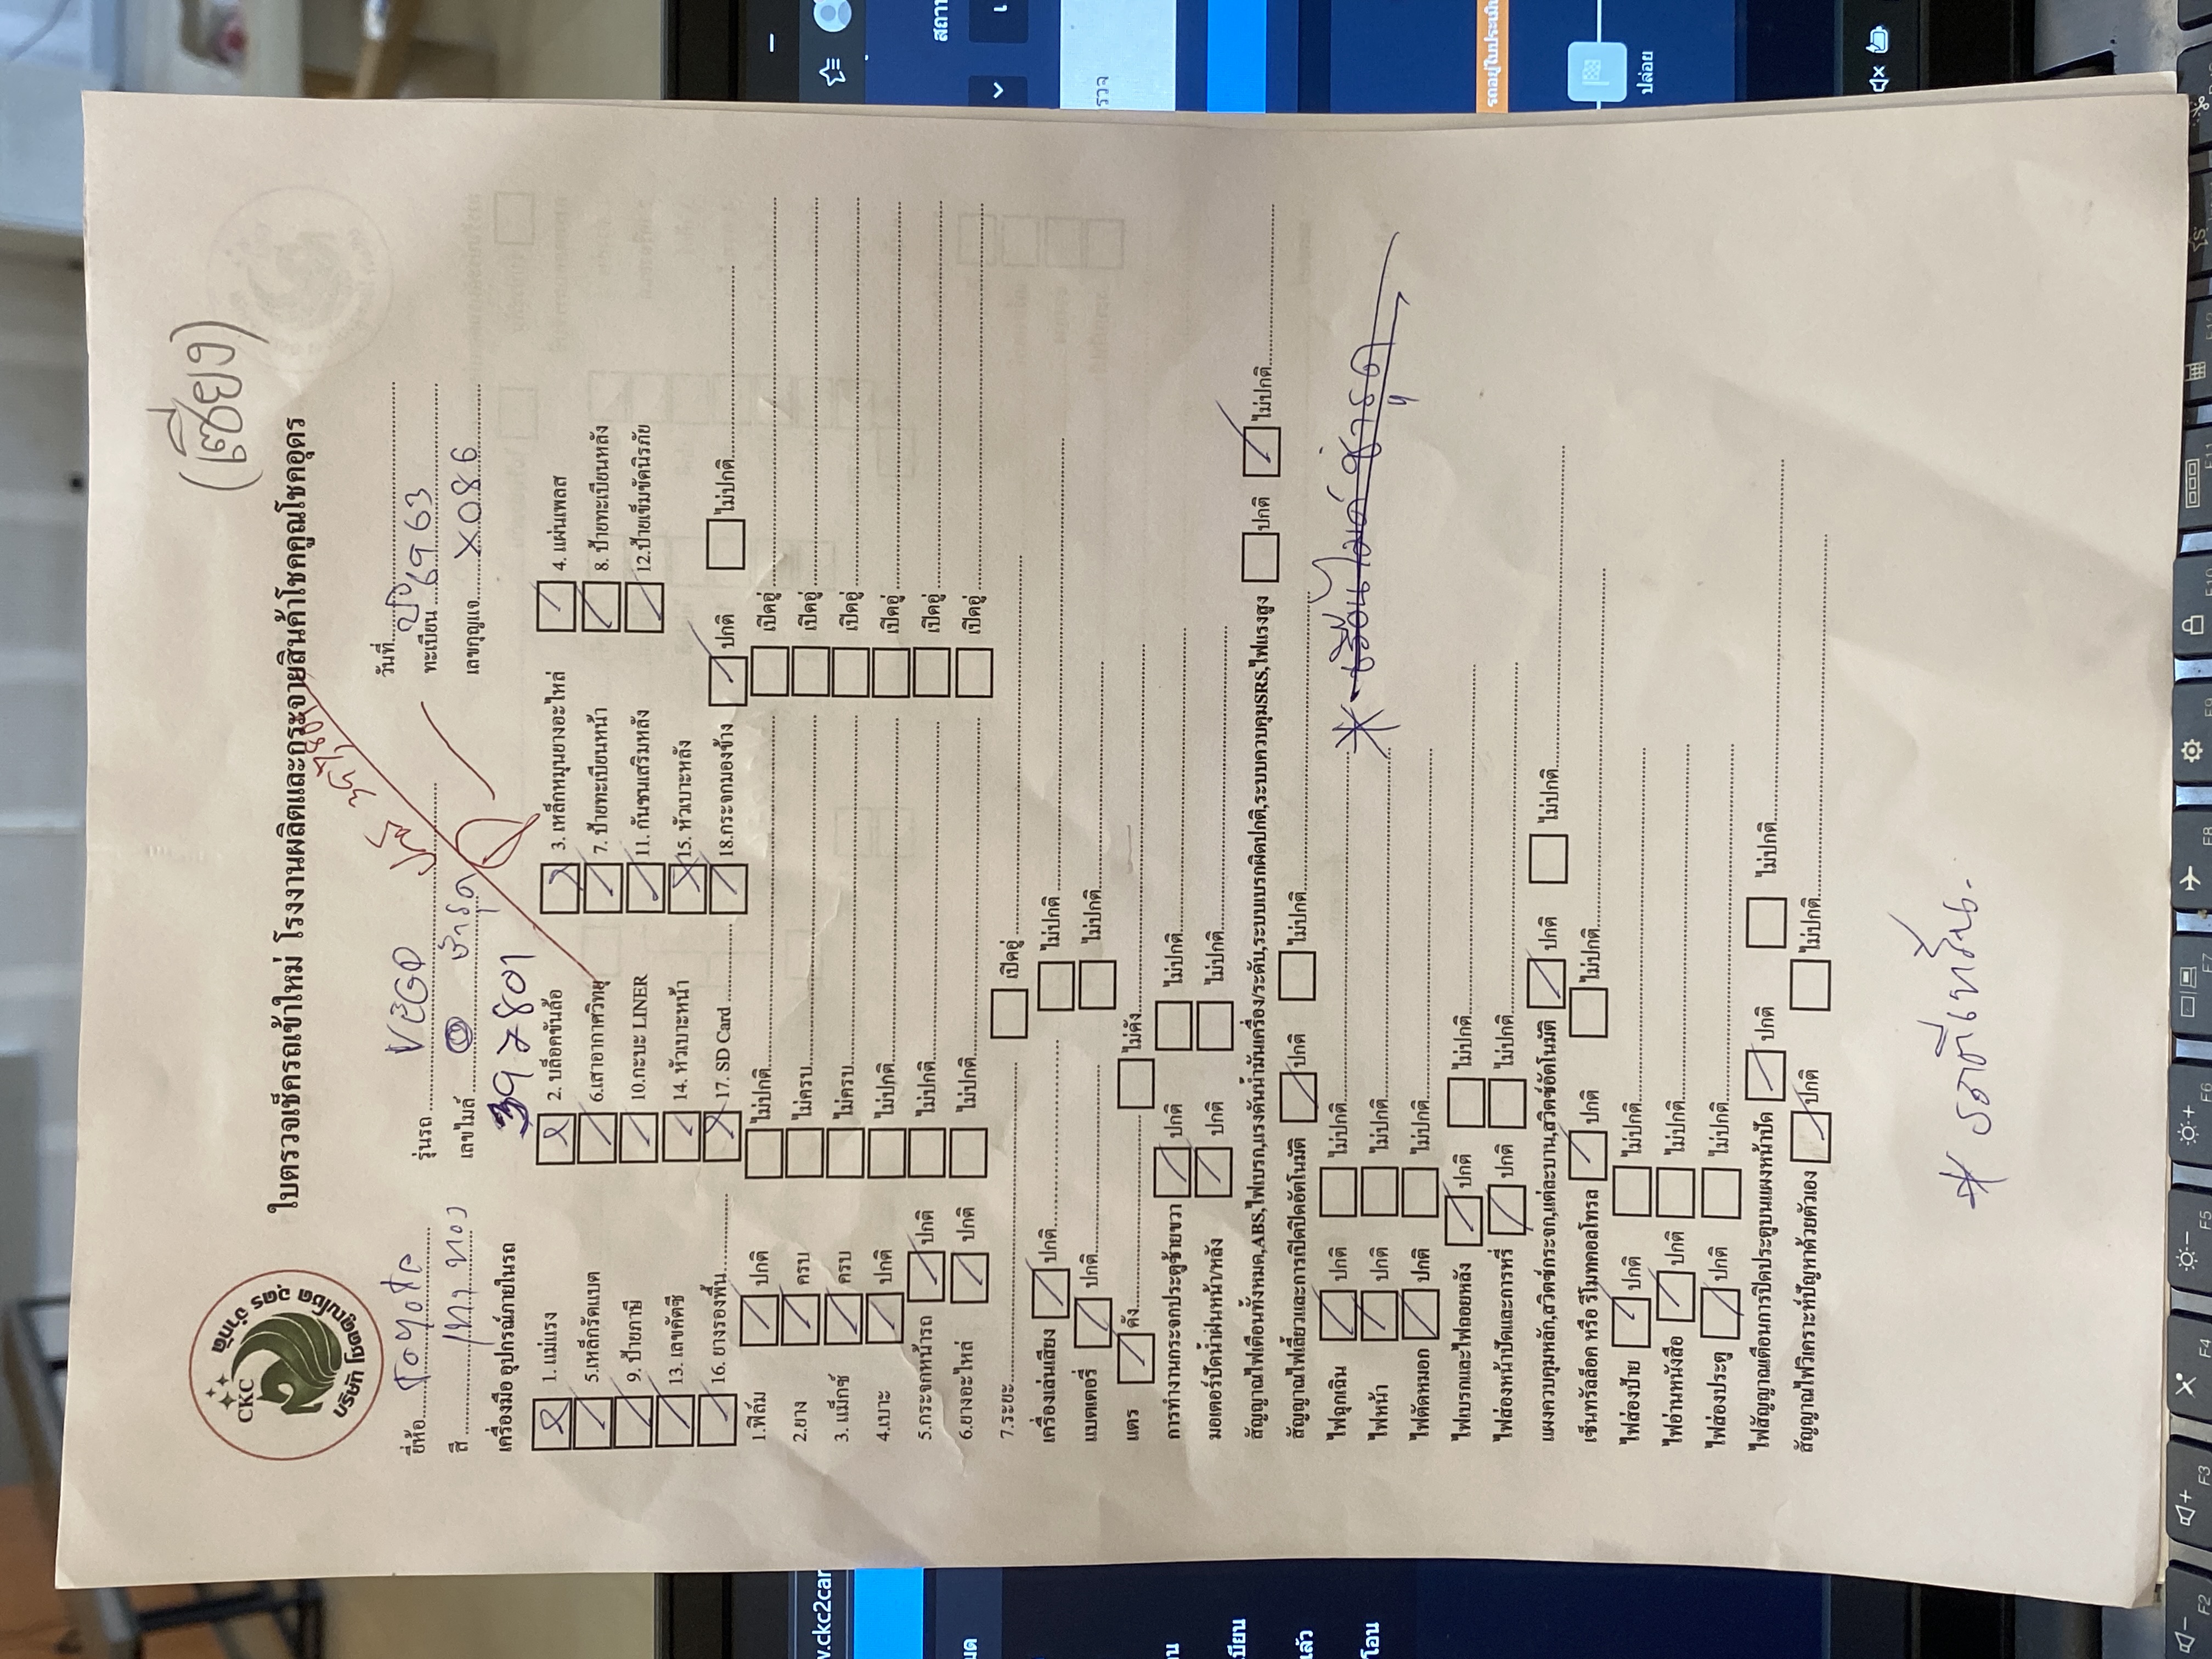 (เซียง)
CKC
บริษัท โชคคูณโชค อุดร จำกัด
ใบตรวจเช็ครถเข้าใหม่ โรงงานผลิตและกระจายสินค้าโชคคูณโชคอุดร
วันที่
ยี่ห้อ Toyota รุ่นรถ VIGO ทะเบียน 6963
สี เทา ทอง เลขไมล์ ชำรุด เลขกุญแจ X086
397801
เครื่องมือ อุปกรณ์ภายในรถ
1. แม่แรง 2. บล็อคขันล้อ 3. เหล็กหมุนยางอะไหล่ 4. แผ่นเพลส
5.เหล็กรัดแบต 6.เสาอากาศวิทยุ 7. ป้ายทะเบียนหน้า 8. ป้ายทะเบียนหลัง
9. ป้ายภาษี 10.กะบะ LINER 11. กันชนเสริมหลัง 12.ป้ายเข็มขัดนิรภัย
13. เลขคัตซี 14. หัวเบาะหน้า 15. หัวเบาะหลัง
16. ยางรองพื้น 17. SD Card 18.กระจกมองข้าง ปกติ ไม่ปกติ
1.ฟิล์ม ปกติ ไม่ปกติ เปิดอู่
2.ยาง ครบ ไม่ครบ เปิดอู่
3. แม็กซ์ ครบ ไม่ครบ เปิดอู่
4.เบาะ ปกติ ไม่ปกติ เปิดอู่
5.กระจกหน้ารถ ปกติ ไม่ปกติ เปิดอู่
6.ยางอะไหล่ ปกติ ไม่ปกติ เปิดอู่
7.ระยะ เปิดอู่
เครื่องเล่นเสียง ปกติ ไม่ปกติ
แบตเตอรี่ ปกติ ไม่ปกติ
แตร ดัง ไม่ดัง
การทำงานกระจกประตูซ้ายขวา ปกติ ไม่ปกติ
มอเตอร์ปัดน้ำฝนหน้า/หลัง ปกติ ไม่ปกติ
สัญญาณไฟเตือนทั้งหมด,ABS,ไฟเบรก,แรงดันน้ำมันเครื่อง/ระดับ,ระบบเบรกผิดปกติ,ระบบควบคุมSRS,ไฟแรงสูง ปกติ ไม่ปกติ
สัญญาณไฟเลี้ยวและการเปิดปิดอัตโนมัติ ปกติ ไม่ปกติ
ไฟฉุกเฉิน ปกติ ไม่ปกติ
ไฟหน้า ปกติ ไม่ปกติ
ไฟตัดหมอก ปกติ ไม่ปกติ
ไฟเบรกและไฟถอยหลัง ปกติ ไม่ปกติ
ไฟส่องหน้าปัดและการหรี่ ปกติ ไม่ปกติ
แผงควบคุมหลัก,สวิตซ์กระจก,แต่ละบาน,สวิตช์อัตโนมัติ ปกติ ไม่ปกติ
เซ็นทรัลล็อค หรือ รีโมทคอลโทรล ปกติ ไม่ปกติ
ไฟส่องป้าย ปกติ ไม่ปกติ
ไฟอ่านหนังสือ ปกติ ไม่ปกติ
ไฟส่องประตู ปกติ ไม่ปกติ
ไฟสัญญาณเตือนการปิดประตูบนแผงหน้าปัด ปกติ ไม่ปกติ
สัญญาณไฟวิเคราะห์ปัญหาด้วยตัวเอง ปกติ ไม่ปกติ